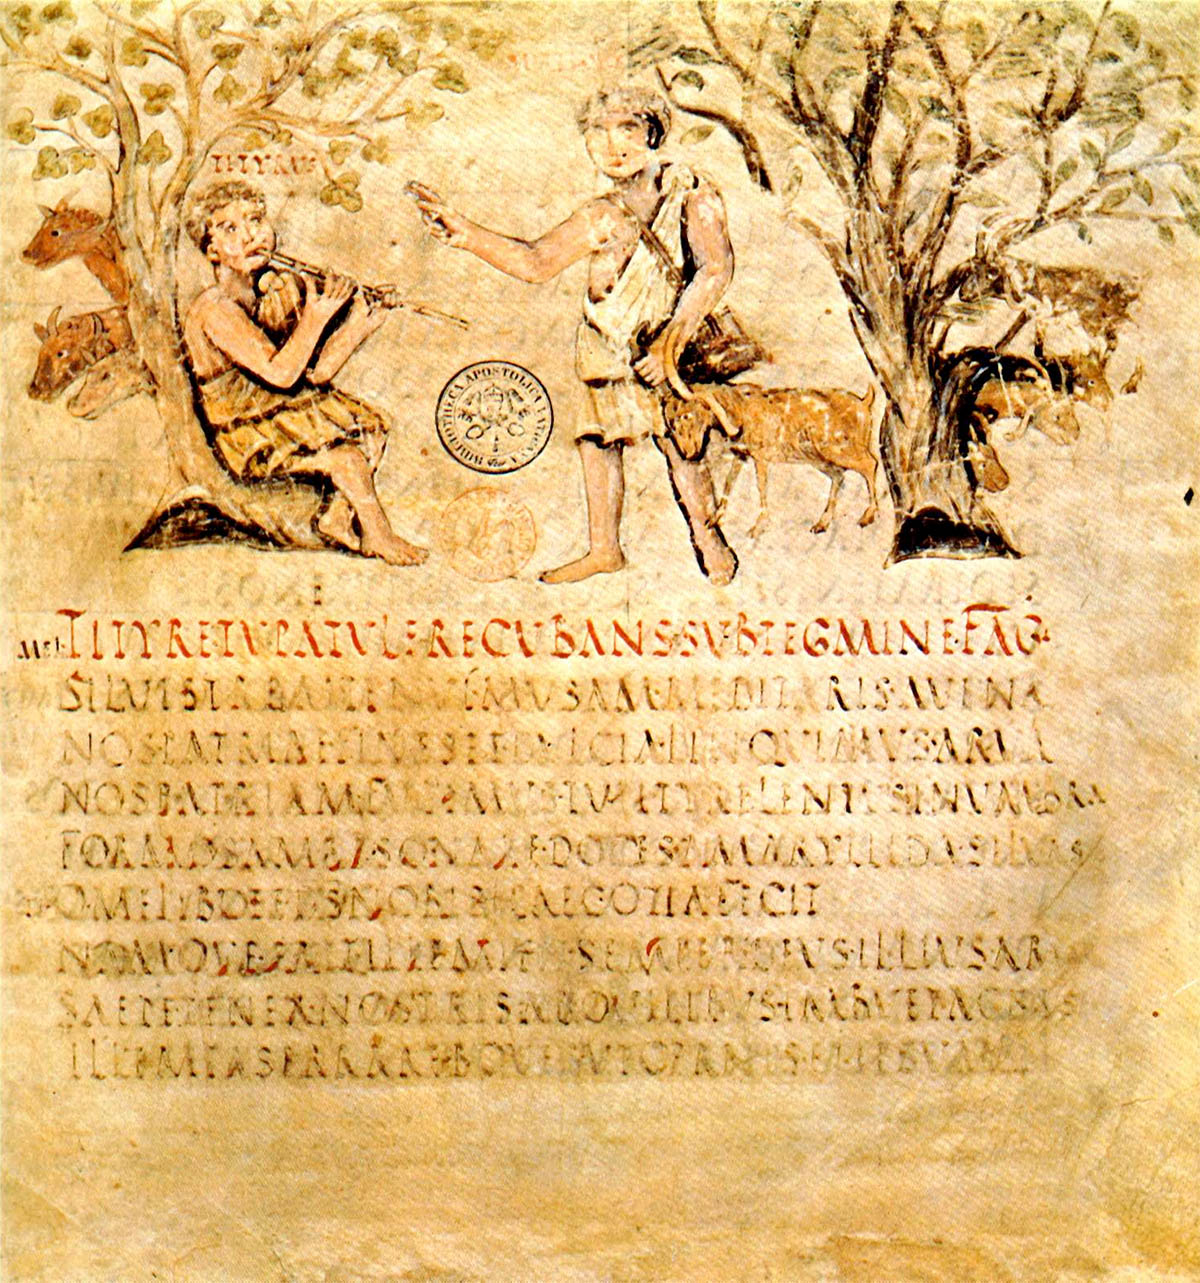 TITYRVS
BIBLIOTHECA APOSTOLICA VATICANA
MEL TITYRE·TV·PATVLE·RECVBANS·SVB·TEGMINE·FAG
SILVESTREM·TENVI·MVSAM·MEDITARIS·AVENA
NOS·PATRIAE·FINES·ET·DVLCIA·LINQVIMVS·ARVA
NOS·PATRIAM·FVGIMVS·TV·TITYRE·LENTVS·IN·VMBRA
FORMOSAM·RESONARE·DOCES·AMARYLLIDA·SILVAS
O·MELIBOEE·DEVS·NOBIS·HAEC·OTIA·FECIT
NAMQVE·ERIT·ILLE·MIHI·SEMPER·DEVS·ILLIVS·AR
SAEPE·TENER·NOSTRIS·AB·OVILIBVS·IMBVET·AGNVS
ILLE·MEAS·ERRARE·BOVES·VT·CERNIS·ET·IPSVM